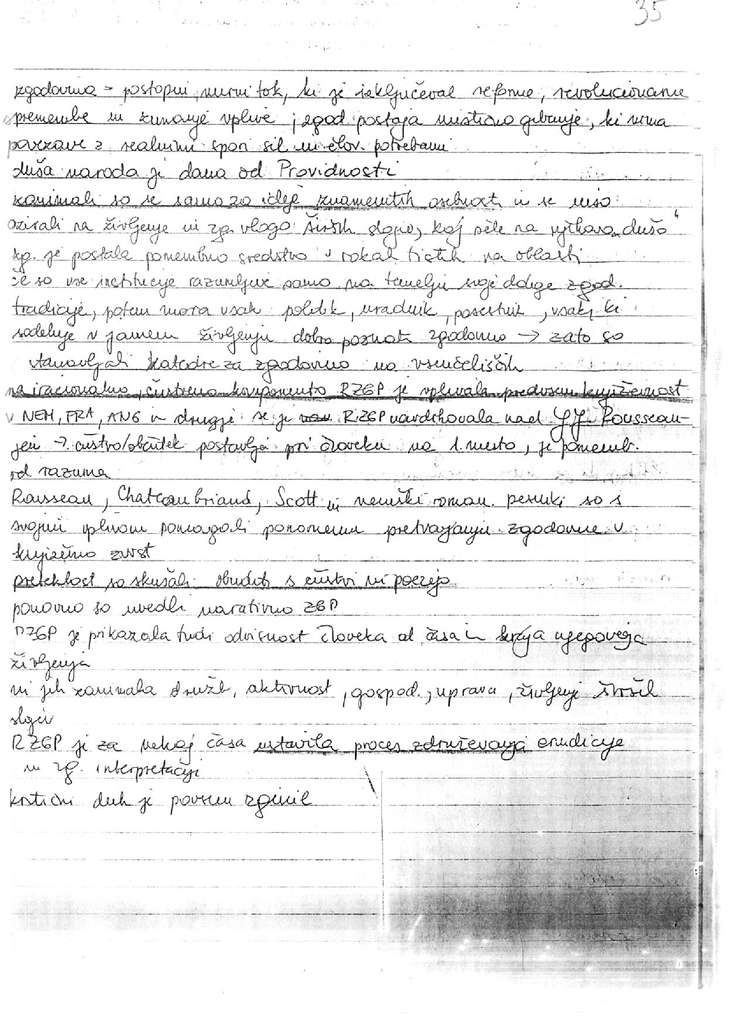 35
zgodovina = postopni, mirni tok, ki je izključeval reforme, revolucionarne
spremembe in zunanje vplive; zgod. postaja mistično gibanje, ki nima
povezave z realnimi spori sil in člov. potrebami
duša naroda je dana od Providnosti
zanimali so se samo za ideje znamenitih osebnosti in se niso
ozirali na življenje in zg. vlogo širših slojev, kaj šele na njihovo "dušo"
zg. je postala pomembno sredstvo v rokah tistih na oblasti
če so vse institucije razumljive samo na temelju svoje dolge zgod.
tradicije, potem mora vsak politik, uradnik, posestnik, vsakj ki
sodeluje v javnem življenju dobro poznati zgodovino → zato so
ustanavljali katedre za zgodovino na vseučeliščih
na iracionalno, čustveno komponento RZGP je vplivala predvsem književnost
v NEM, FRA, ANG in drugje se je RZGP navdihovala nad J.J. Rousseau-
jem → čustvo/občutek postavlja pri človeku na 1. mesto, je pomemb.
od razuma
Rousseau, Chateaubriand, Scott in nemški roman. pesniki so s
svojim vplivom pomagali ponovnemu pretvarjanju zgodovine v
književno zvrst
preteklost so skušali obuditi s čustvi in poezijo
ponovno so uvedli narativno ZGP
RZGP je prikazala tudi odvisnost človeka od časa in kraja njegovega
življenja
ni jih zanimala družb. aktivnost, gospod., uprava, življenje širših
slojev
RZGP je za nekaj časa ustavila proces združevanja erudicije
in zg. interpretacije
kritični duh je povsem zginil